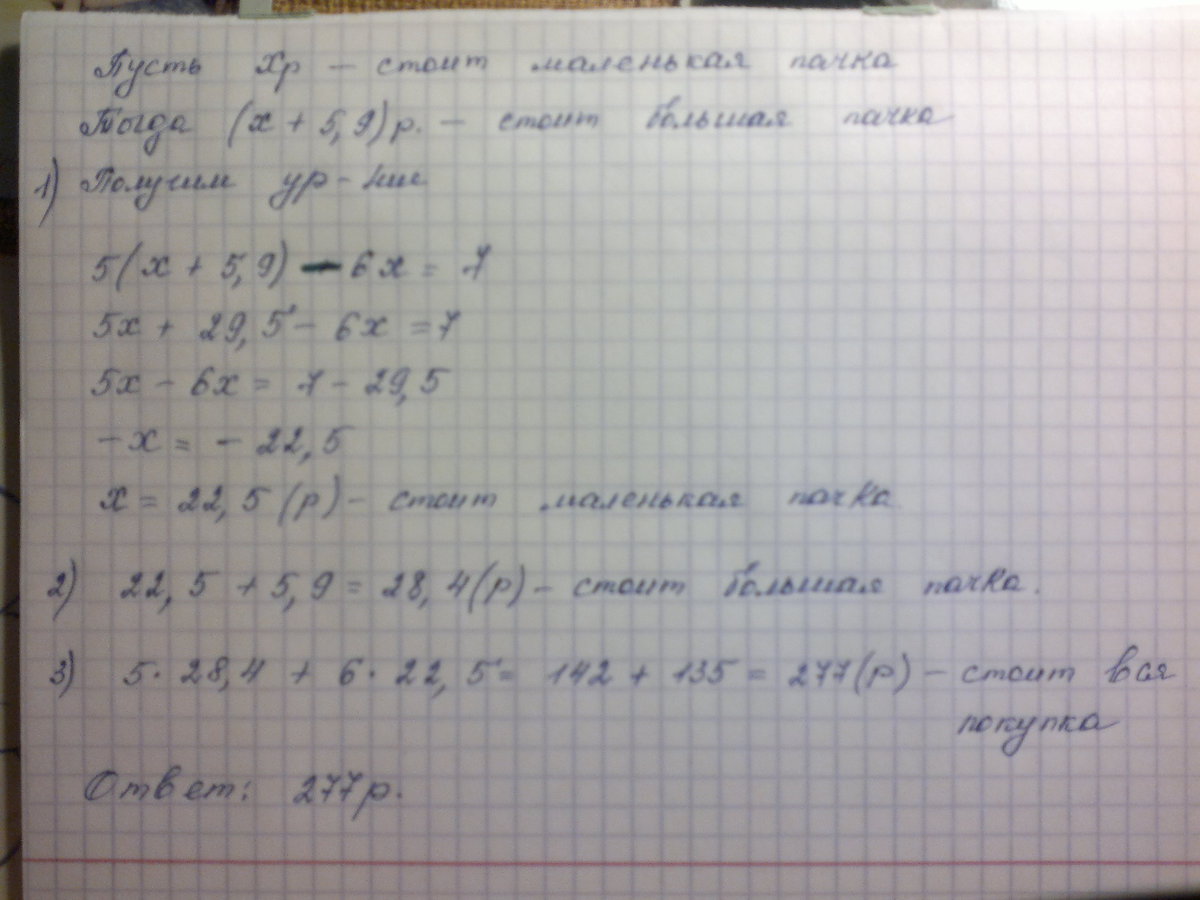 Пусть х р — стоит маленькая пачка
Тогда (х + 5,9) р. — стоит большая пачка
1) Получим ур-ние
5(х + 5,9) — 6х = 7
5х + 29,5 - 6х = 7
5х - 6х = 7 - 29,5
-х = - 22,5
х = 22,5 (р) - стоит маленькая пачка
2) 22,5 + 5,9 = 28,4 (р) - стоит большая пачка.
3) 5 · 28,4 + 6 · 22,5 = 142 + 135 = 277 (р) - стоит вся
покупка
Ответ: 277 р.